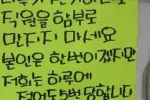 직원을 함부로
만지지 마세요
본인은 한번이겠지만
저희는 하루에
적어도 5번 당합니다